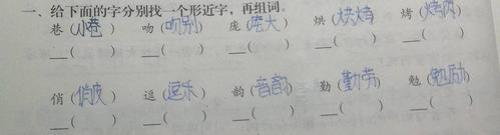 一、给下面的字分别找一个形近字，再组词。
巷（小巷） 吻（吻别） 庞（庞大） 烘（烘烤） 烤（烤肉）
__（ ） __（ ） __（ ） __（ ） __（ ）
俏（俏皮） 逗（逗乐） 韵（音韵） 勤（勤劳） 勉（勉励）
__（ ） __（ ） __（ ） __（ ） __（ ）